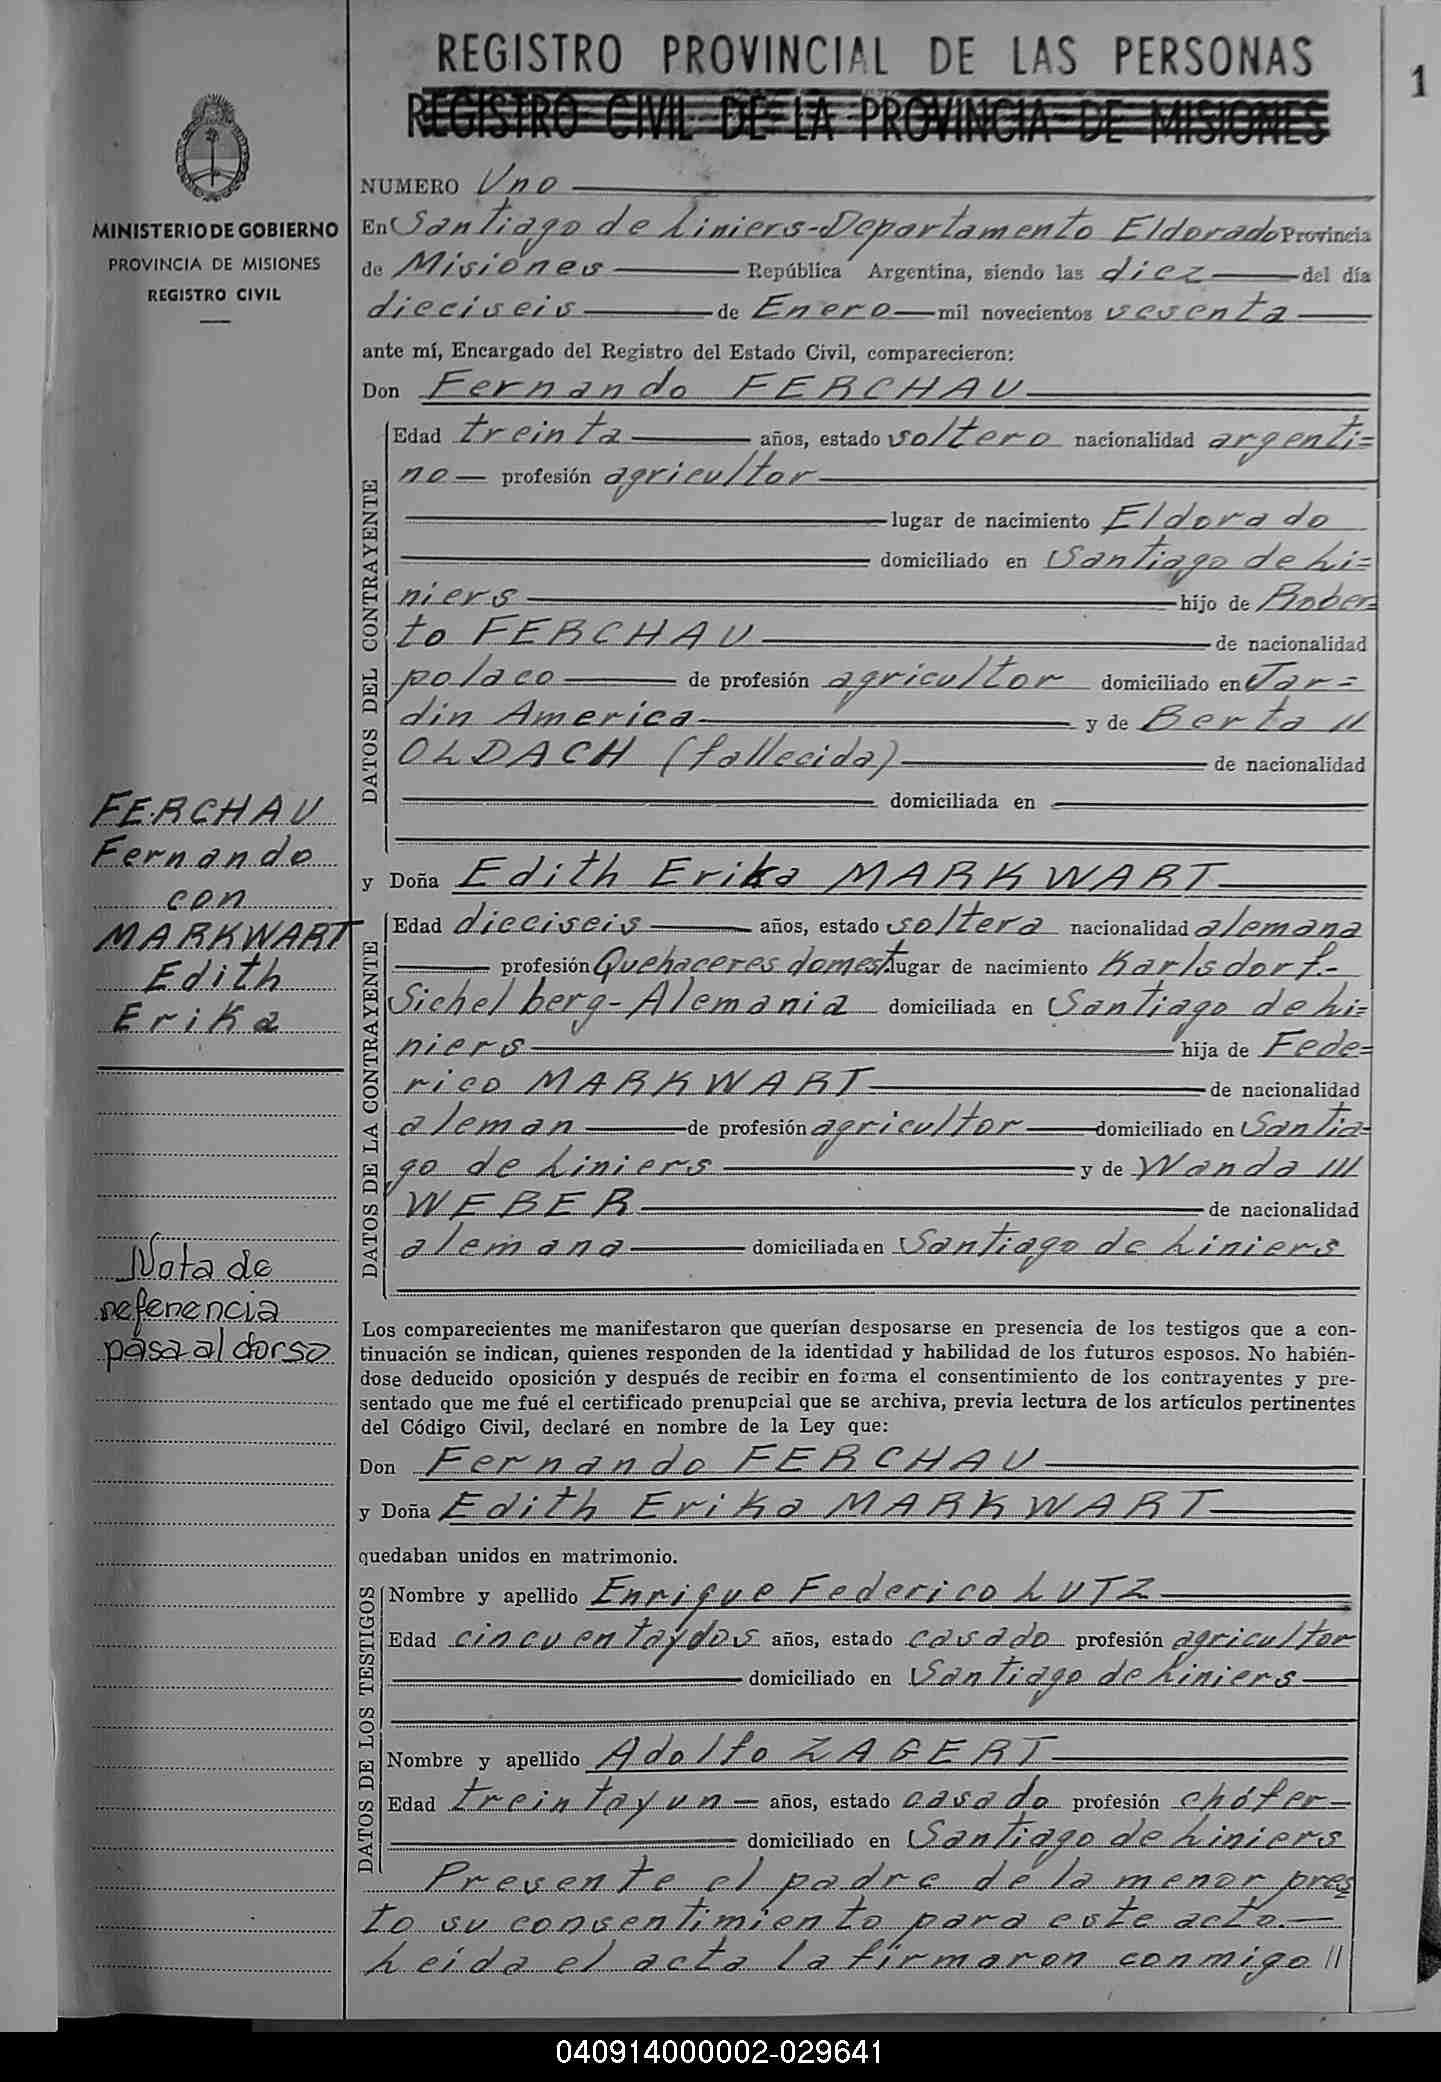 REGISTRO PROVINCIAL DE LAS PERSONAS
REGISTRO CIVIL DE LA PROVINCIA DE MISIONES
1
MINISTERIO DE GOBIERNO
PROVINCIA DE MISIONES
REGISTRO CIVIL
FERCHAU
Fernando
con
MARKWART
Edith
Erika
Nota de
referencia
pasa al dorso
NUMERO Uno
En Santiago de Liniers-Departamento Eldorado Provincia
de Misiones República Argentina, siendo las diez del día
dieciseis de Enero mil novecientos sesenta
ante mí, Encargado del Registro del Estado Civil, comparecieron:
Don Fernando FERCHAU
DATOS DEL CONTRAYENTE
Edad treinta años, estado soltero nacionalidad argenti=
no profesión agricultor
lugar de nacimiento Eldorado
domiciliado en Santiago de Li=
niers hijo de Rober=
to FERCHAU de nacionalidad
polaco de profesión agricultor domiciliado en Jar=
din America y de Berta //
OLDACH (fallecida) de nacionalidad
domiciliada en
y Doña Edith Erika MARKWART
DATOS DE LA CONTRAYENTE
Edad dieciseis años, estado soltera nacionalidad alemana
profesión Quehaceres domest. lugar de nacimiento Karlsdorf.-
Sichelberg-Alemania domiciliada en Santiago de Li=
niers hija de Fede=
rico MARKWART de nacionalidad
aleman de profesión agricultor domiciliado en Santia=
go de Liniers y de Wanda ///
WEBER de nacionalidad
alemana domiciliada en Santiago de Liniers
Los comparecientes me manifestaron que querían desposarse en presencia de los testigos que a con-
tinuación se indican, quienes responden de la identidad y habilidad de los futuros esposos. No habién-
dose deducido oposición y después de recibir en forma el consentimiento de los contrayentes y pre-
sentado que me fué el certificado prenupcial que se archiva, previa lectura de los artículos pertinentes
del Código Civil, declaré en nombre de la Ley que:
Don Fernando FERCHAU
y Doña Edith Erika MARKWART
quedaban unidos en matrimonio.
DATOS DE LOS TESTIGOS
Nombre y apellido Enrique Federico LUTZ
Edad cincuentaydos años, estado casado profesión agricultor
domiciliado en Santiago de Liniers
Nombre y apellido Adolfo ZAGERT
Edad treintayun años, estado casado profesión chófer
domiciliado en Santiago de Liniers
Presente el padre de la menor pres
to su consentimiento para este acto.-
Leida el acta la firmaron conmigo //
040914000002-029641